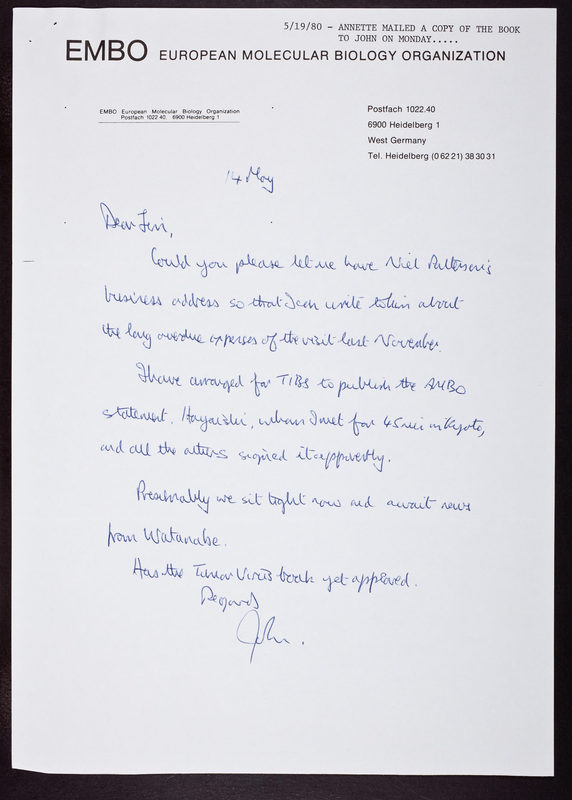 5/19/80 - ANNETTE MAILED A COPY OF THE BOOK
TO JOHN ON MONDAY.....
EMBO EUROPEAN MOLECULAR BIOLOGY ORGANIZATION
EMBO European Molecular Biology Organization
Postfach 1022.40. 6900 Heidelberg 1
Postfach 1022.40
6900 Heidelberg 1
West Germany
Tel. Heidelberg (0 62 21) 38 30 31
14 May
Dear
Could you please let me have Niel Patterson's
business address so that I can write to him about
the long overdue expenses of the visit last November.
I have arranged for TIBS to publish the AMBO
statement. Hayaishi, whom I met for 45 min in Kyoto,
and all the others signed it apparently.
Presumably we sit tight now and await news
from Watanabe.
Has the Tumor Virus book yet appeared.
Regards
John.